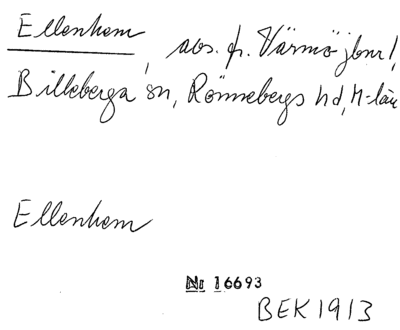 Ellenhem, avs. fr. Värmö jbnr 1,
Billeberga sn, Rönnebergs hd, M-län
Ellenhem
Nr 16693
BEK 1913